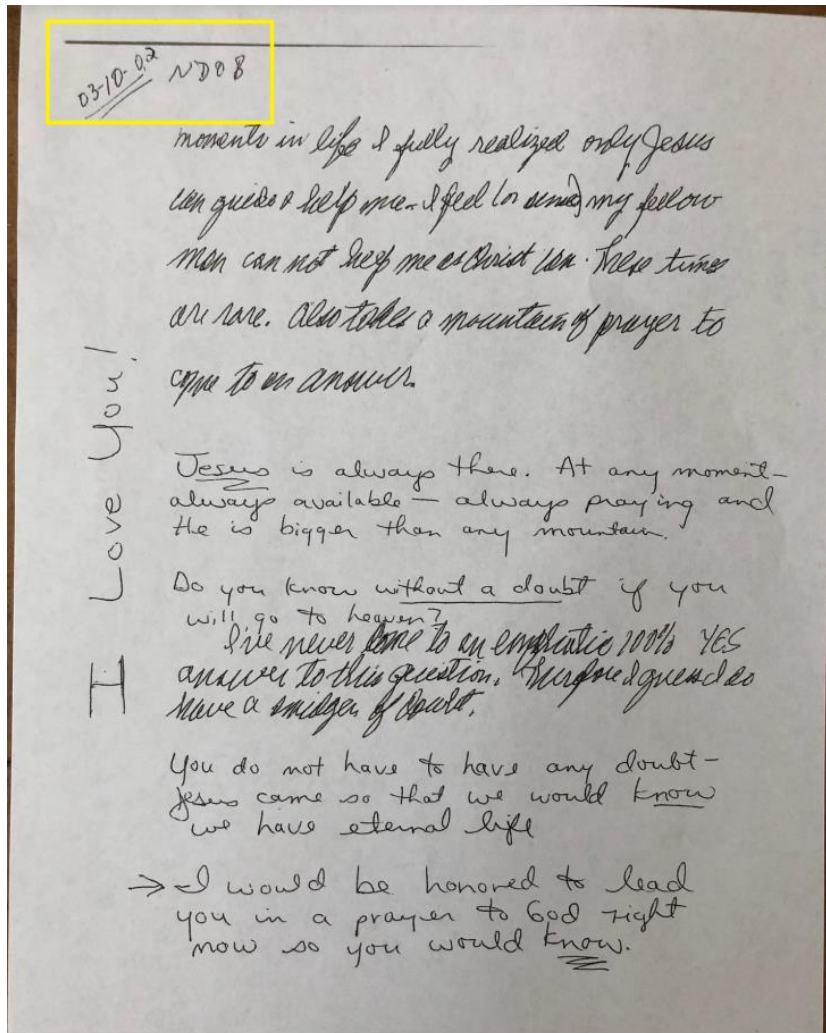 03-10-02 ND08
moments in life I fully realized only Jesus
can guide & help me - I feel (or sense) my fellow
man can not help me as Christ can. These times
are rare. Also takes a mountain of prayer to
come to an answer.
Jesus is always there. At any moment-
always available — always praying and
He is bigger than any mountain.
Do you know without a doubt if you
will go to heaven?
I've never come to an emphatic 100% YES
answer to this question, therefore I guess I do
have a smidgen of doubt.
You do not have to have any doubt-
Jesus came so that we would know
we have eternal life
→ I would be honored to lead
you in a prayer to God right
now so you would know.
I Love You!